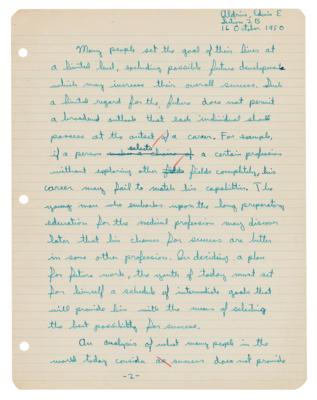 Aldrin, Edwin E.
Section 2 B
16 October 1950
Many people set the goal of their lives at
a limited level, excluding possible future developments
which may increase their overall success. Such
a limited regard for the future does not permit
a broadened outlook that each individual should
possess at the outset of a career. For example,
selects
if a person makes a choice of a certain profession
without exploring other fields completely, his
career may fail to match his capabilities. The
young man who embarks upon the long preparatory
education for the medical profession may discover
later that his chances for success are better
in some other profession. In deciding a plan
for future work, the youth of today must set
for himself a schedule of intermediate goals that
will provide him with the means of selecting
the best possibility for success.
An analysis of what many people in the
world today consider as success does not provide
-2-